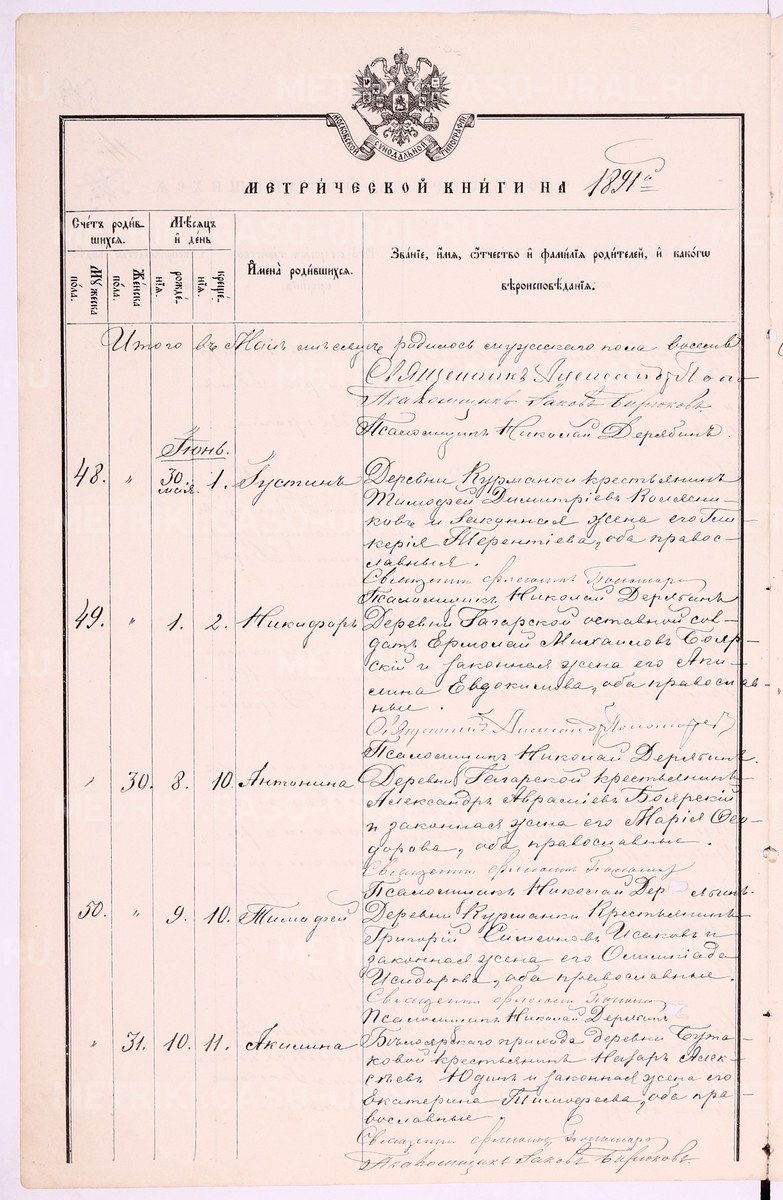 МОСКОВСКОЙ СѴНОДАЛЬНОЙ ТИПОГРАФІИ
МЕТРИ́ЧЕСКОЙ КНИ́ГИ НА 1891 г.
Сче́тъ роди́в-
шихся.
Мѣ́сяцъ
и҆ де́нь
И҆мена̀ роди́вшихся.
Зва́нїе, и҆́мя, ѻ҆́тчество и҆ фами́лїя роди́телей, и҆ како́гѡ
вѣроисповѣ́данїя.
Мꙋ́жеска
по́ла.
Же́нска
по́ла.
рожде́-
нїѧ.
креще́-
нїѧ.
Итого въ Маѣ мѣсяцѣ родилось мужскаго пола восемь
Священникъ Александръ
Псаломщикъ Іаковъ Бирюковъ
Псаломщикъ Николай Дерябинъ.
Іюнь.
48. " 30 мая. 1. Іустинъ Деревни Курманки крестьянинъ
Тимофей Димитріевъ Колясни-
ковъ и законная жена его Гли-
керія Терентіева, оба право-
славныя.
Священникъ Пономарев
Псаломщикъ Николай Дерябинъ
49. " 1. 2. Никифоръ Деревни Гагарской отставной сол-
датъ Ермолай Михаиловъ Бояр-
скій и законная жена его Аки-
лина Евдокимова, оба православ-
ные.
Священникъ Александръ Пономаревъ
Псаломщикъ Николай Дерябинъ.
" 30. 8. 10. Антонина Деревни Гагарской крестьянинъ
Александръ Авраміевъ Боярскій
и законная жена его Марія Ѳео-
дорова, оба православные.
Священникъ
Псаломщикъ Николай Дерябинъ.
50. " 9. 10. Тимофей Деревни Курманки Крестьянинъ
Григорій Симеоновъ Исаковъ и
законная жена его Олимпіада
Исидорова, оба православные.
Священникъ
Псаломщикъ Николай Дерябинъ
" 31. 10. 11. Акилина Бѣлоярскаго прихода деревни Бута-
ковой крестьянинъ Назаръ Алек-
сѣевъ Юдинъ и законная жена его
Екатерина Тимофеева, оба пра-
вославные.
Священникъ
Псаломщикъ Іаковъ Бирюковъ